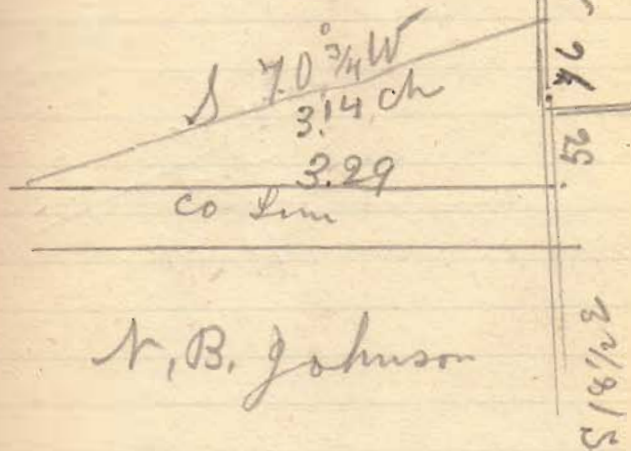 S 70°3/4 W
3.14 ch
3.29
co Line
N, B. Johnson
94
56
S 18 1/2 E